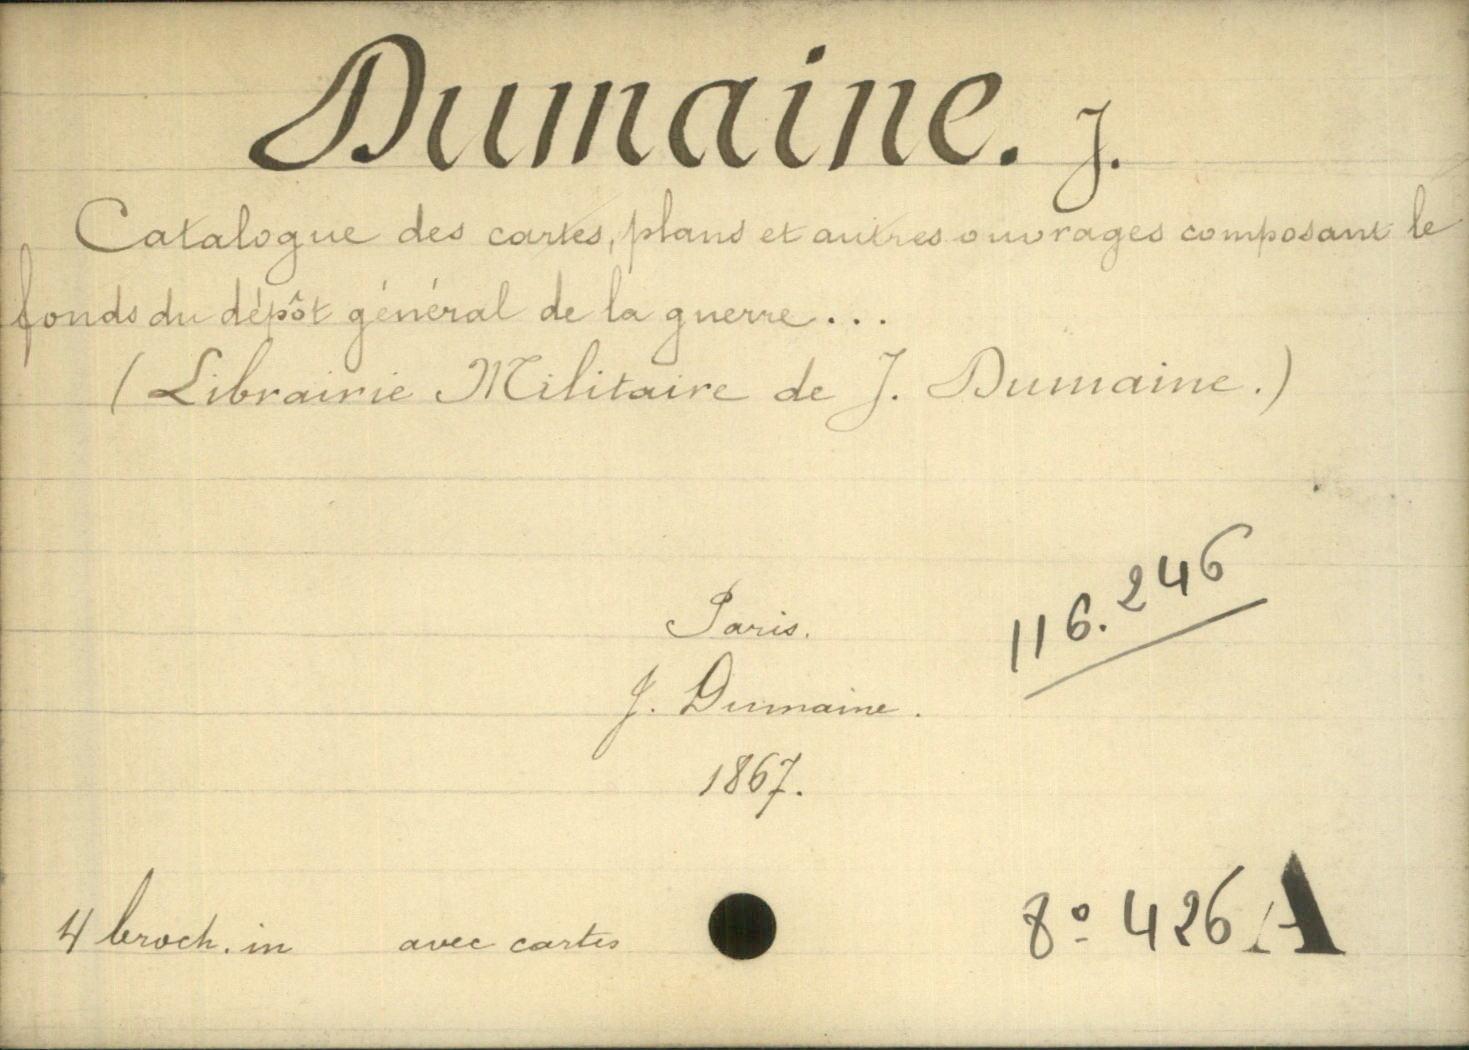 Dumaine. J.
Catalogue des cartes, plans et autres ouvrages composant le
fonds du dépôt général de la guerre...
(Librairie Militaire de J. Dumaine.)
116.246
Paris.
J. Dumaine.
1867.
4 broch. in avec cartes
8º 426 A